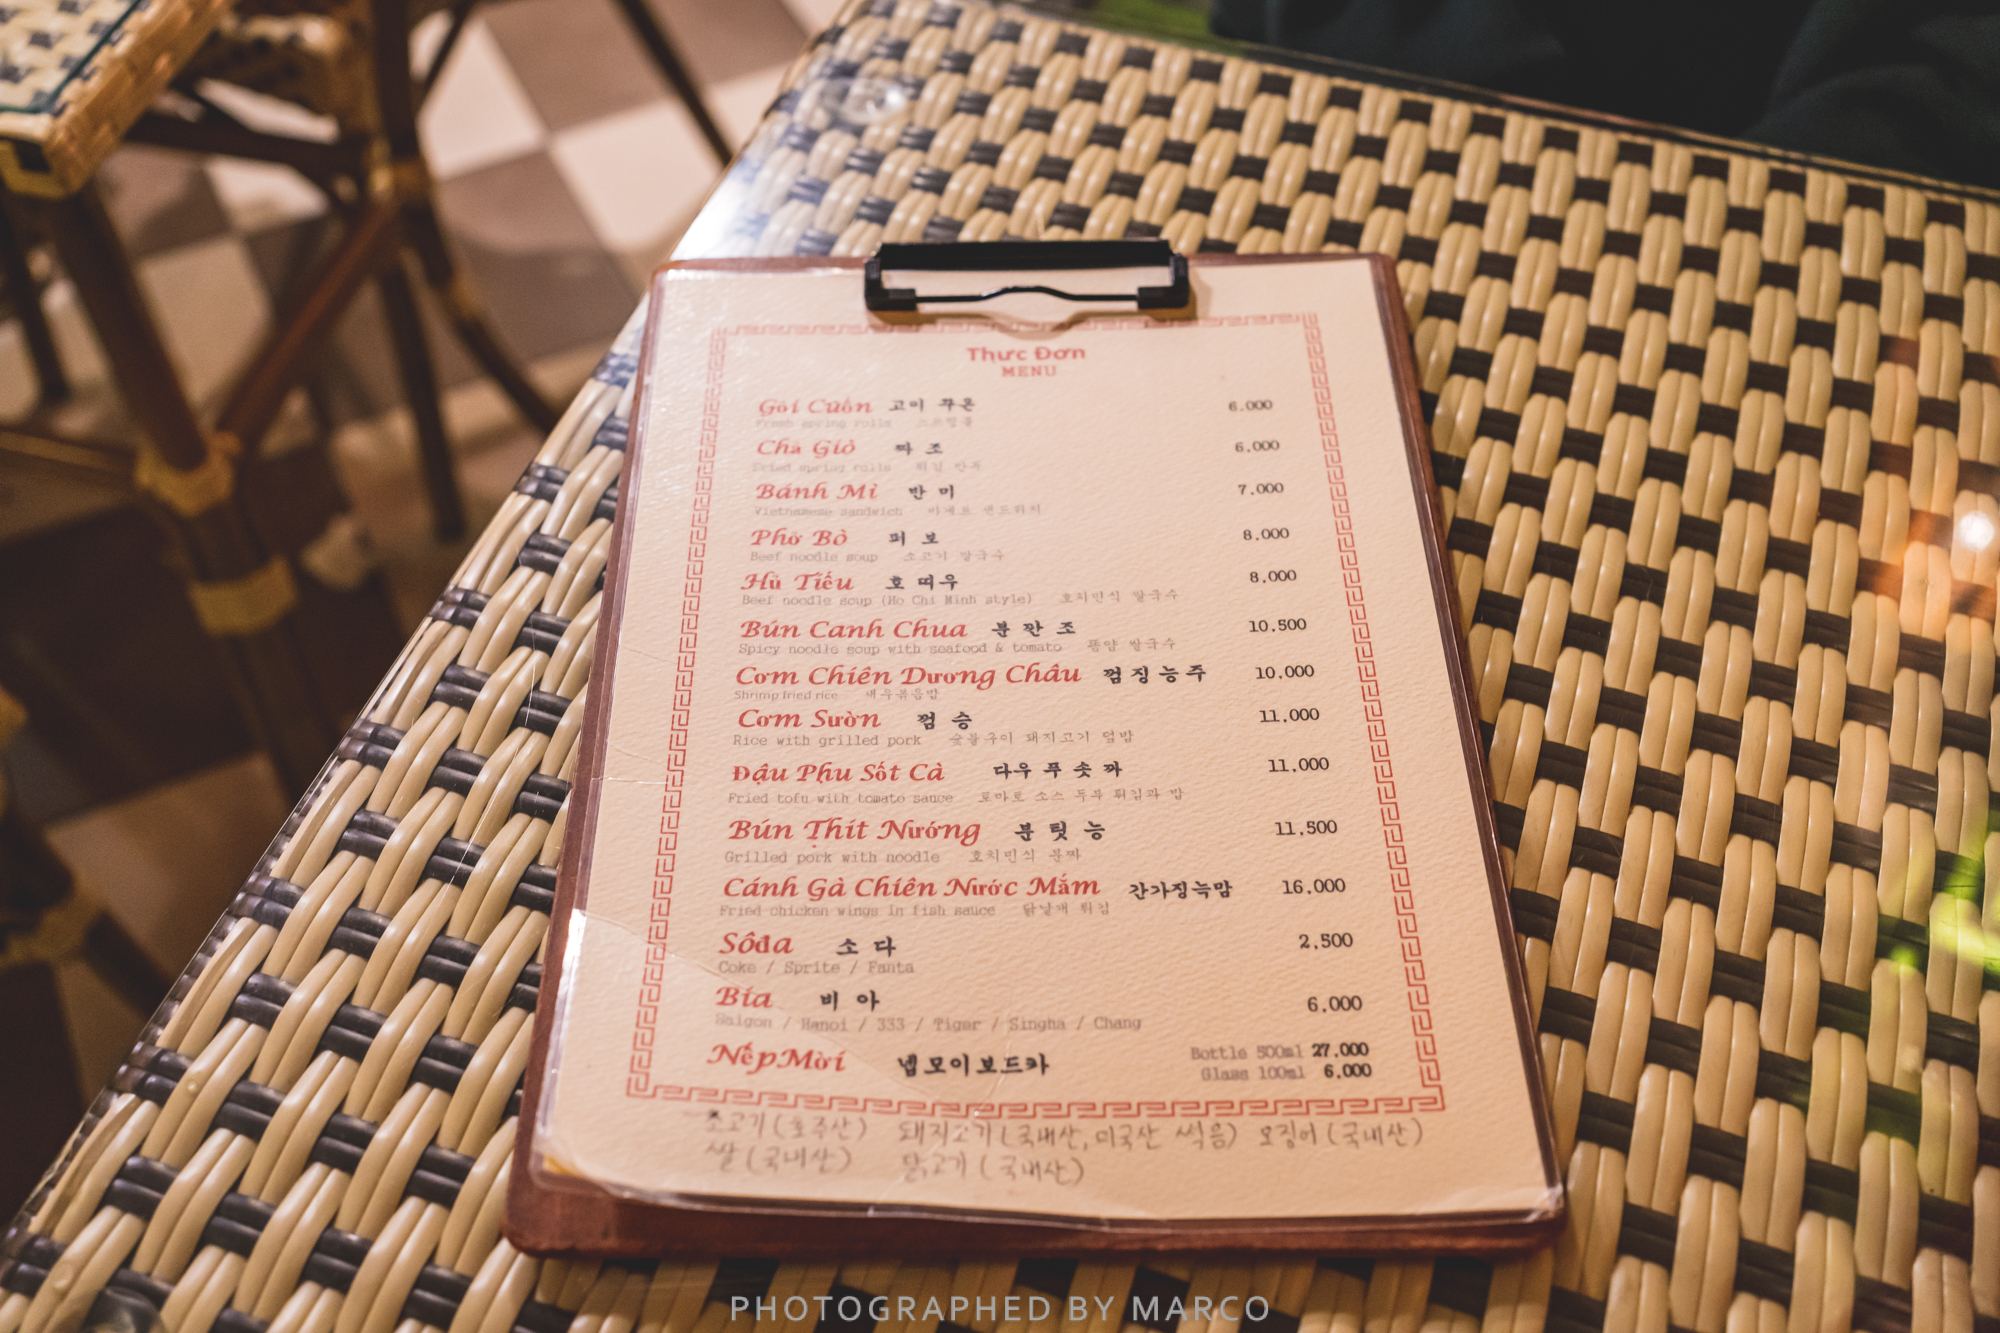 Thực Đơn
MENU
Gỏi Cuốn 고이 꾸온 6.000
Fresh spring rolls 스프링롤
Chả Giò 짜 조 6,000
Fried spring rolls 튀김 만두
Bánh Mì 반 미 7.000
Vietnamese sandwich 바게트 샌드위치
Phở Bò 퍼 보 8,000
Beef noodle soup 소고기 쌀국수
Hủ Tiếu 호 띠우 8,000
Beef noodle soup (Ho Chi Minh style) 호치민식 쌀국수
Bún Canh Chua 분 깐 조 10,500
Spicy noodle soup with seafood & tomato 똠얌 쌀국수
Cơm Chiên Dương Châu 껌징능주 10.000
Shrimp fried rice 새우볶음밥
Cơm Sườn 껌 승 11,000
Rice with grilled pork 숯불구이 돼지고기 덮밥
Đậu Phu Sốt Cà 다우 푸 솟 까 11,000
Fried tofu with tomato sauce 토마토 소스 두부 튀김과 밥
Bún Thịt Nướng 분 팃 능 11,500
Grilled pork with noodle 호치민식 분짜
Cánh Gà Chiên Nước Mắm 간가징늑맘 16,000
Fried chicken wings in fish sauce 닭날개 튀김
Sôđa 소 다 2,500
Coke / Sprite / Fanta
Bia 비 아 6,000
Saigon / Hanoi / 333 / Tiger / Singha / Chang
Nếp Mời 넵모이보드카 Bottle 500ml 27.000
Glass 100ml 6,000
소고기 (호주산) 돼지고기 (국내산, 미국산 섞음) 오징어 (국내산)
쌀 (국내산) 닭고기 (국내산)
PHOTOGRAPHED BY MARCO